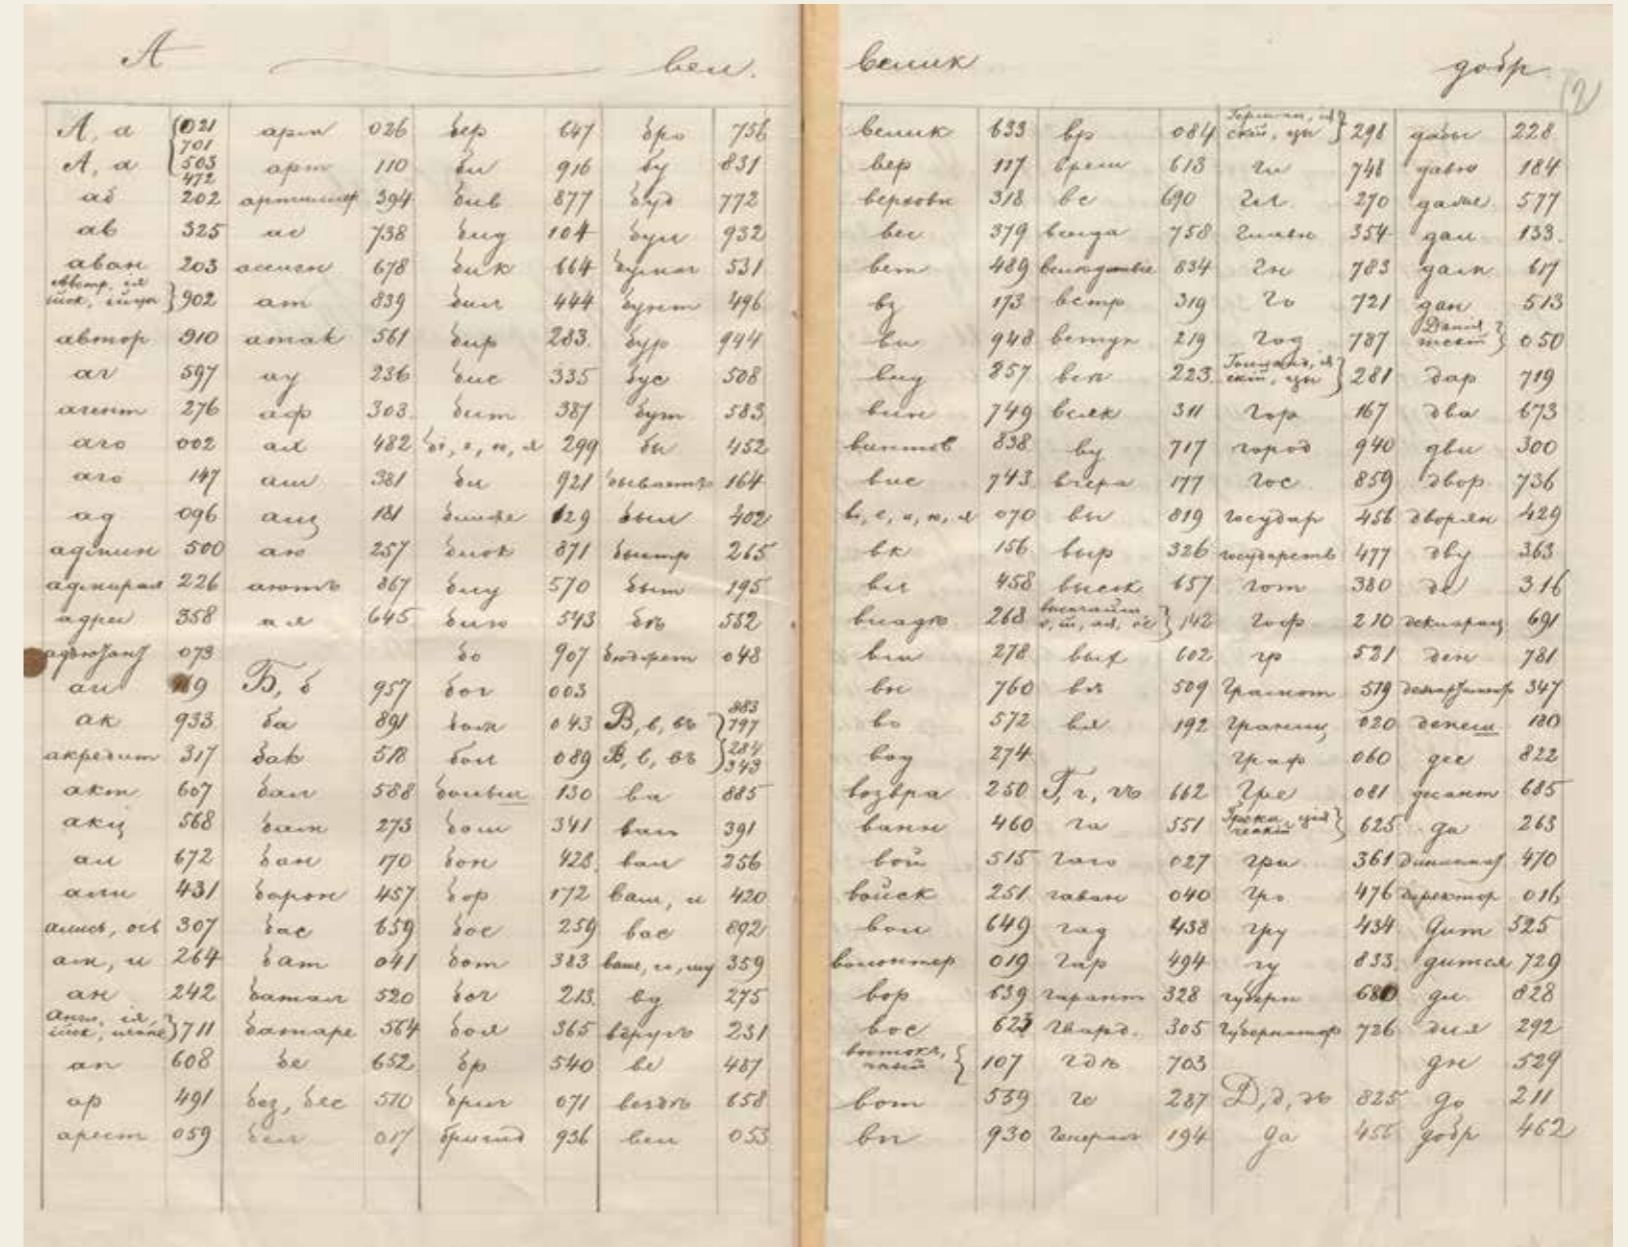 А вел.
А, а 021 арм 026 бер 647 бро 756
701
А, а 503 арт 110 би 916 бу 831
472
аб 202 артиллер 394 бив 877 буд 772
ав 325 ас 738 бид 104 бул 932
аван 203 ассигн 678 бик 664 бумаг 531
Австр, ія
902 ат 839 бил 444 бунт 496
автор 910 атак 561 бир 283 бур 944
аг 597 ау 236 бис 335 бус 508
агент 276 аф 303 бит 387 бут 583
аго 002 ах 482 299 бы 452
147 аш 381 бл 921 бываетъ 164
ад 096 ащ 181 ближе 129 был 402
админ 500 аю 257 блок 871 быстр 265
адмирал 226 аютъ 867 блу 570 быт 195
адрес 358 ая 645 блю 543 бѣ 552
адъютант 073 бо 907 бюджет 048
аи Б, б 957 бог 003
ак 933 ба 891 043 В, в, въ 883
797
акредит 317 бак 518 бол 089 В, в, въ 284
343
акт 607 бал 588 больш 130 ва 885
акц 568 273 бом 341 391
ал 672 бан 170 бон 428 вал 256
али 431 барон 457 бор 172 ваш, и 420
307 бас 659 бос 259 вас 892
ам, и 264 бат 041 бот 383 359
ан 242 батал 520 боч 213 вд 275
Англ, ія,
711 батаре 564 боя 365 вдругъ 231
ап 608 бе 652 бр 540 ве 487
ар 491 без, бес 510 бриг 071 вездѣ 658
арест 059 бел 017 бригад 936 вел 053
велик добр
2
велик 633 вр 084 298 давы 228
вер 117 врем 613 ги 748 давно 184
верховн 318 вс 690 гл 270 далее 577
вес 379 всегда 758 главн 354 дал 133
вет 489 вследствіе 834 гн 783 617
вз 173 встр 319 го 721 дан 513
ви 948 вступ 219 год 787 050
вид 857 всп 223 281 дар 719
вин 749 всяк 311 гор 167 два 673
винтов 838 ву 717 город 940 дви 300
вис 743 вчера 177 гос 859 двор 736
070 вы 819 государ 456 дворян 429
вк 156 выр 326 государств 477 дву 363
вл 458 высок 657 гот 380 де 316
владѣ 268 142 гоф 210 декларац 691
вм 278 вых 602 гр 521 ден 781
вн 760 вѣ 509 грамот 519 департамент 347
во 572 вя 192 границ 020 депеш 180
вод 274 граф 060 дес 822
возвра 250 Г, г, гъ 662 гре 081 десант 685
воен 460 га 551 625 ди 263
вой 515 гаго 027 гри 361 дипломат 470
войск 251 гаван 040 гро 476 директор 016
вол 649 гад 438 гру 434 дит 525
волонтер 019 гар 494 гу 833 дится 729
вор 639 гарант 328 губерн 680 дл 828
вос 623 гвард. 305 губернатор 726 для 292
востокъ,
чный 107 гдѣ 703 дн 529
вот 559 ге 287 Д, д, дъ 825 до 211
вп 930 генерал 194 да 455 добр 462